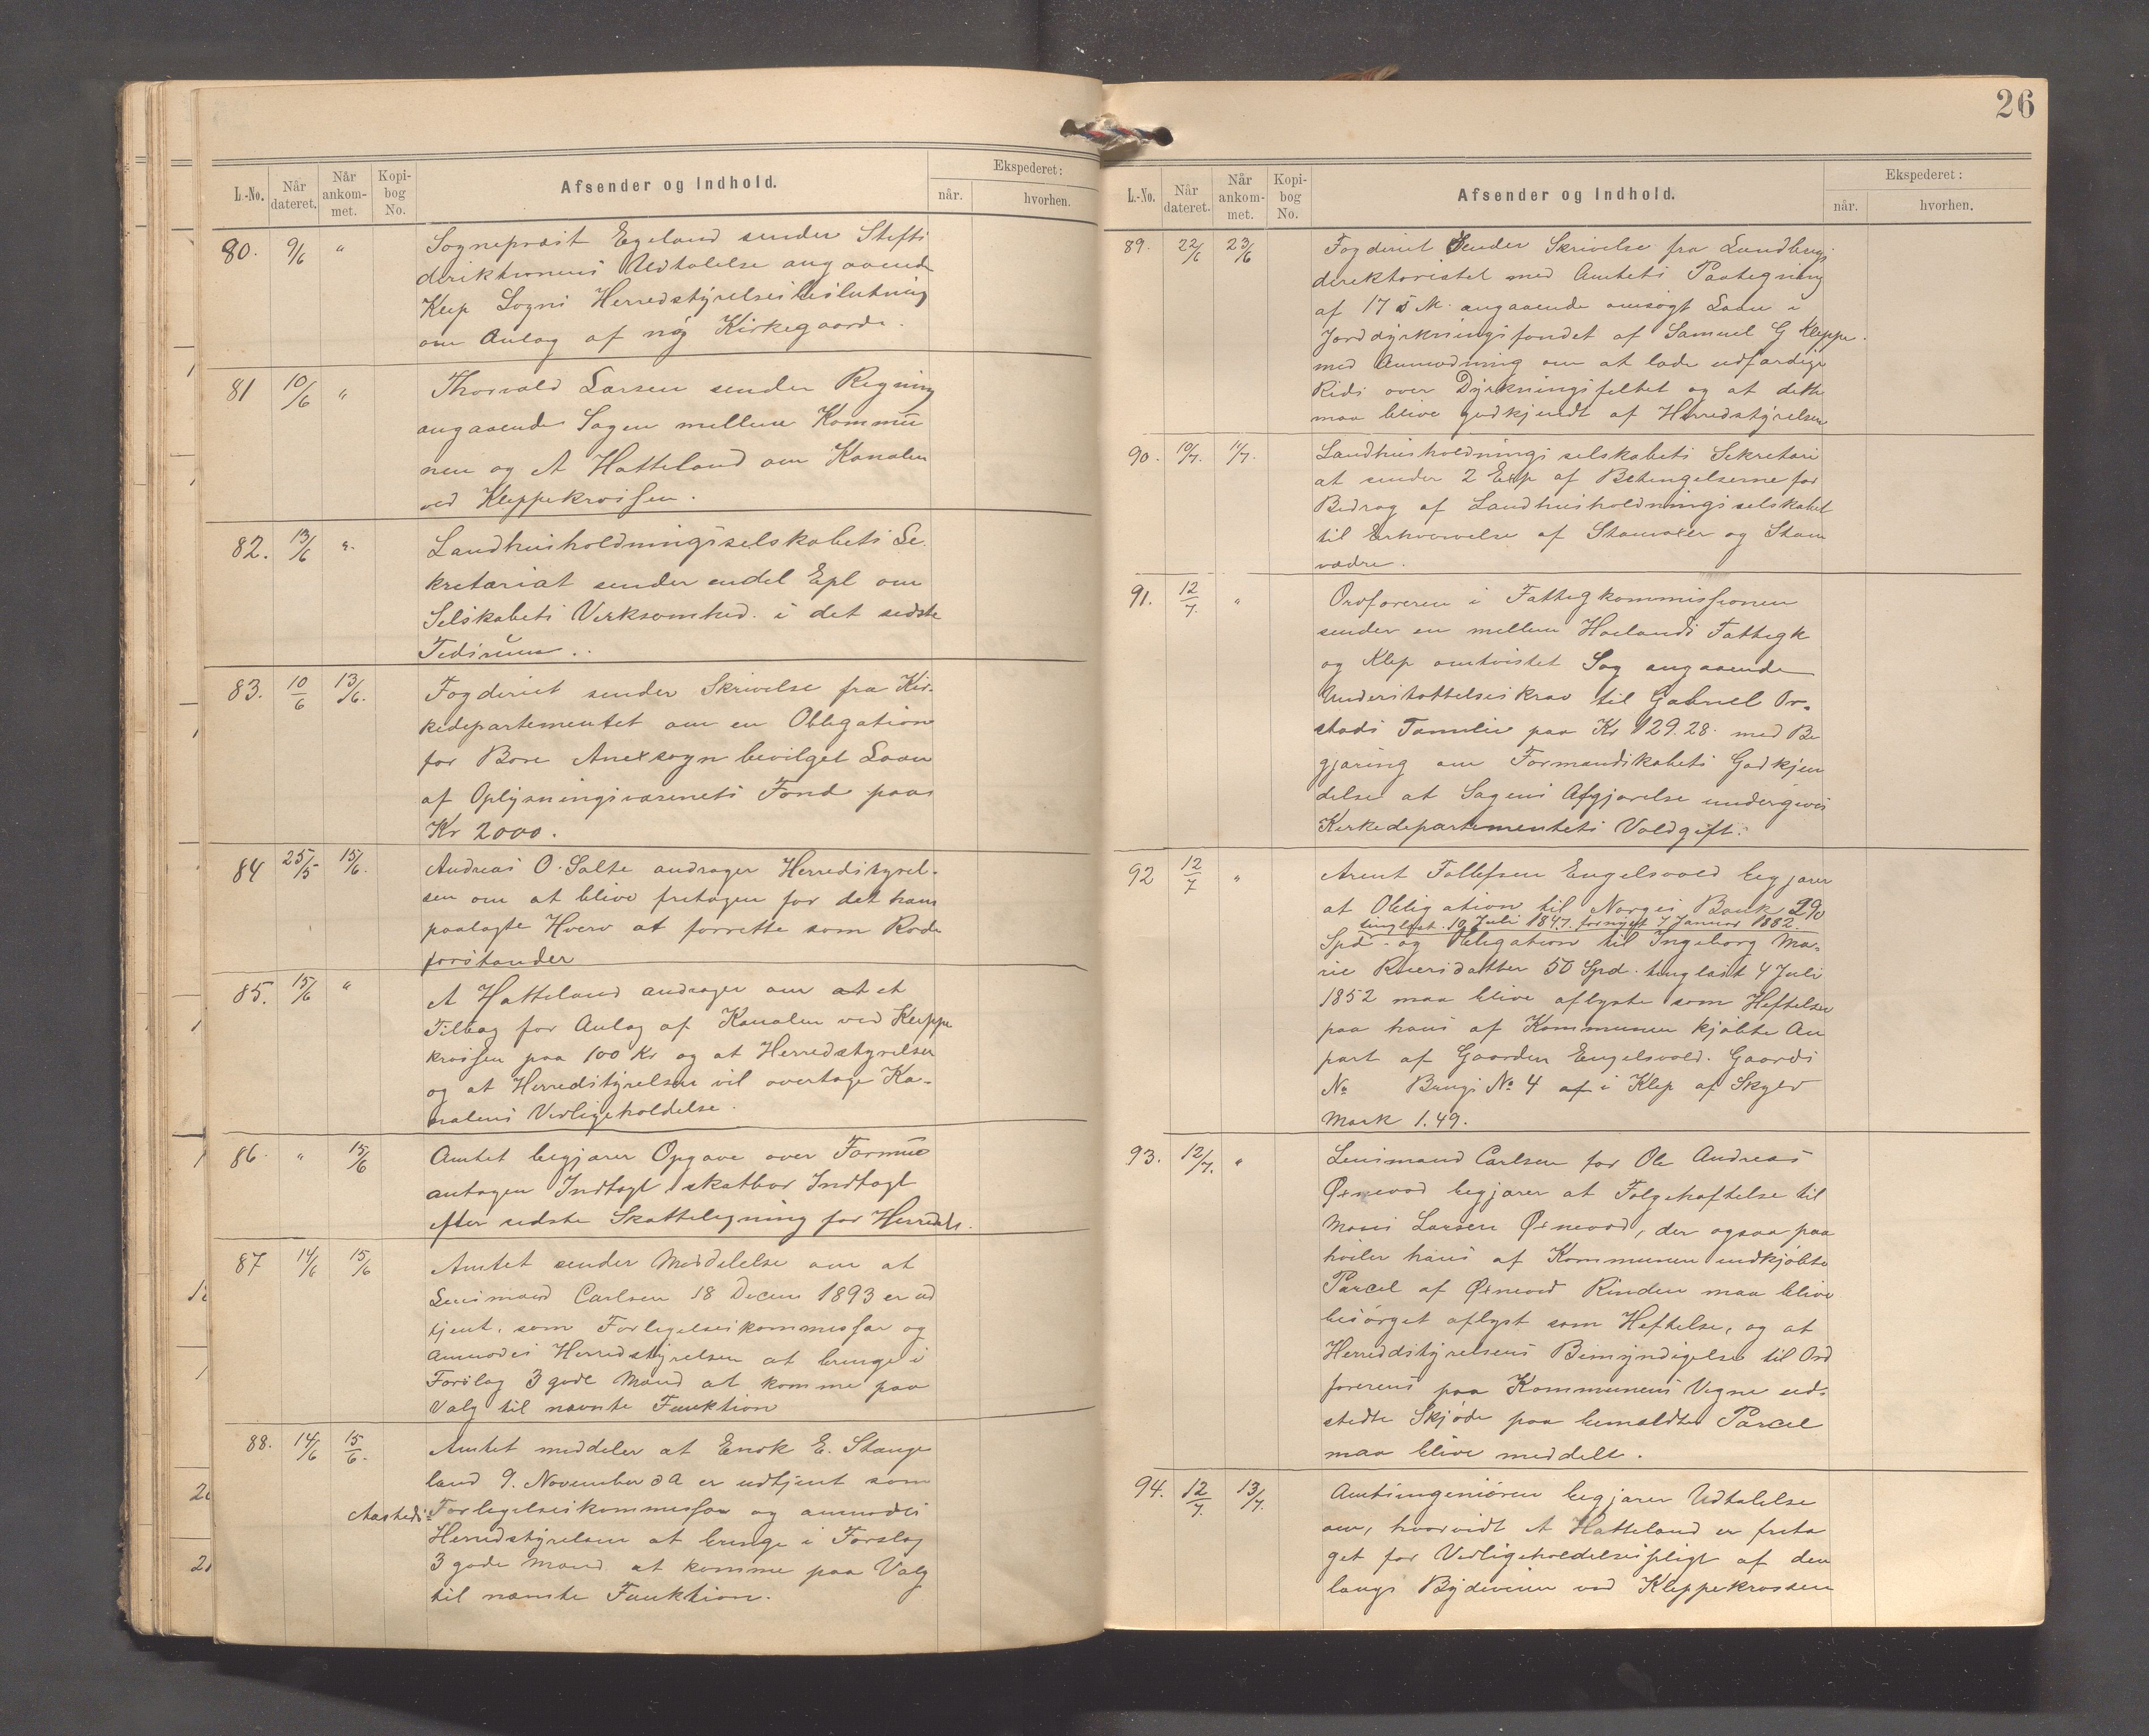 26
L.-No. Når dateret. Når ankommet. Kopibog No. Afsender og Indhold. Ekspederet: når. hvorhen.
80. 9/6 " Sognepræst Egeland sender Stifts
direktionens Udtalelse angaaende
Klep Sogns Herredstyrelses beslutning
om Anlæg af ny Kirkegaarde.
81 10/6 " Thorvald Larsen sender Regning
angaaende Sagen mellem Kommu
nen og A Hatteland om Kanalen
ved Kleppekrossen.
82. 13/6 ". Landhusholdningsselskabets Se
kretariat sender endel Epl om
Selskabets Virksomhed. i det sidste
Tidsrum.
83. 10/6 13/6. Fogderiet sender Skrivelse fra Kir-
kedepartementet om en Obligation
for Bore Anexsogn bevilget Laan
af Oplysningsvæsenets Fond paa
Kr 2000.
84 25/5 15/6. Andreas O. Salte andrager Herredstyrel-
sen om at blive fritagen for det ham
paalagte Hverv at forrette som Rode
forstander
85. 15/6 " A Hatteland andrager om at et
Tillæg for Anlæg af Kanalen ved Kleppe
krossen paa 100 Kr og at Herredstyrelsen
og at Herredstyrelsen vil overtage Ka-
nalens Vedligeholdelse.
86. " 15/6 Amtet begjærer Opgave over Formue
antagen Indtægt, skatbar Indtægt
efter sidste Skatteligning for Herredet.
87 14/6 15/6 Amtet sender Meddelelse om at
Lensmand Carlsen 18 Decem 1893 er ud
tjent, som Forligelseskommissær og
anmodes Herredstyrelsen at bringe i
Forslag 3 gode Mænd at komme paa
Valg til nævnte Funktion
88. 14/6 15/6. Amtet meddeler at Enok E. Stange
land 9. November d A er udtjent som
Aasteds- Forligelseskommissær og anmodes
Herredstyrelsen at bringe i Forslag
3 gode Mænd at komme paa Valg
til nævnte Funktion.
L.-No. Når dateret. Når ankommet. Kopibog No. Afsender og Indhold. Ekspederet: når. hvorhen.
89. 22/6 23/6 Fogderiet Sender Skrivelse fra Landbrugs
direktoratet med Amtets Paategning
af 17 d M. angaaende ansøgt Laan i
Jorddyrkningsfondet af Samuel G Kleppe.
med Anmodning om at lade udfærdige
Rids over Dyrkningsfeltet og at dette
maa blive godkjendt af Herredstyrelsen
90. 10/7. 11/7. Landhusholdnings selskabets Sekretari
at sender 2 Exp af Betingelserne for
Bidrag af Landhusholdningsselskabet
til Erhvervelse af Stamoxer og Stam
vædre.
91. 12/7. " Ordføreren i Fattigkommissionen
sender en mellem Høilands Fattigk
og Klep omtvistet Sag angaaende
Understøttelseskrav til Gabriel Or-
stads Familie paa Kr 129.28. med Be
gjæring om Formandskabets Godkjen
delse at Sagens Afgjørelse undergives
Kirkedepartementets Voldgift.
92 12/7 " Arent Tollefsen Engelsvold begjærer
at Obligation til Norges Bank 290
tinglæst. 19 Juli 1847. fornyet 7 Januar 1882.
Spd. og Obligation til Ingeborg Ma-
rie Reiersdatter 50 Spd. tinglæst 4 Juli
1852 maa blive aflyste som Heftelser
paa hans af Kommunen kjøbte An
part af Gaarden Engelsvold. Gaards
No Brugs No 4 af i Klep af Skyld
Mark 1.49.
93. 12/7. " Lensmand Carlsen for Ole Andreas
Øxnevad begjærer at Følgeheftelse til
Mons Larsen Øxnevad, der ogsaa paa
hviler hans af Kommunen indkjøbte
Parcel af Øxnevad Rinden maa blive
besørget aflyst som Heftelse, og at
Herreddstyrelsens Bemyndigelse til Ord
førerens paa Kommunens Vegne ud-
stedte Skjøde paa bemældte Parcel
maa blive meddelt.
94. 12/7. 13/7. Amtsingeniøren begjærer Udtalelse
om, hvorvidt A Hatteland er frita
get for Vedligeholdelsespligt af den
langs Bygdeveien ved Kleppekrossen